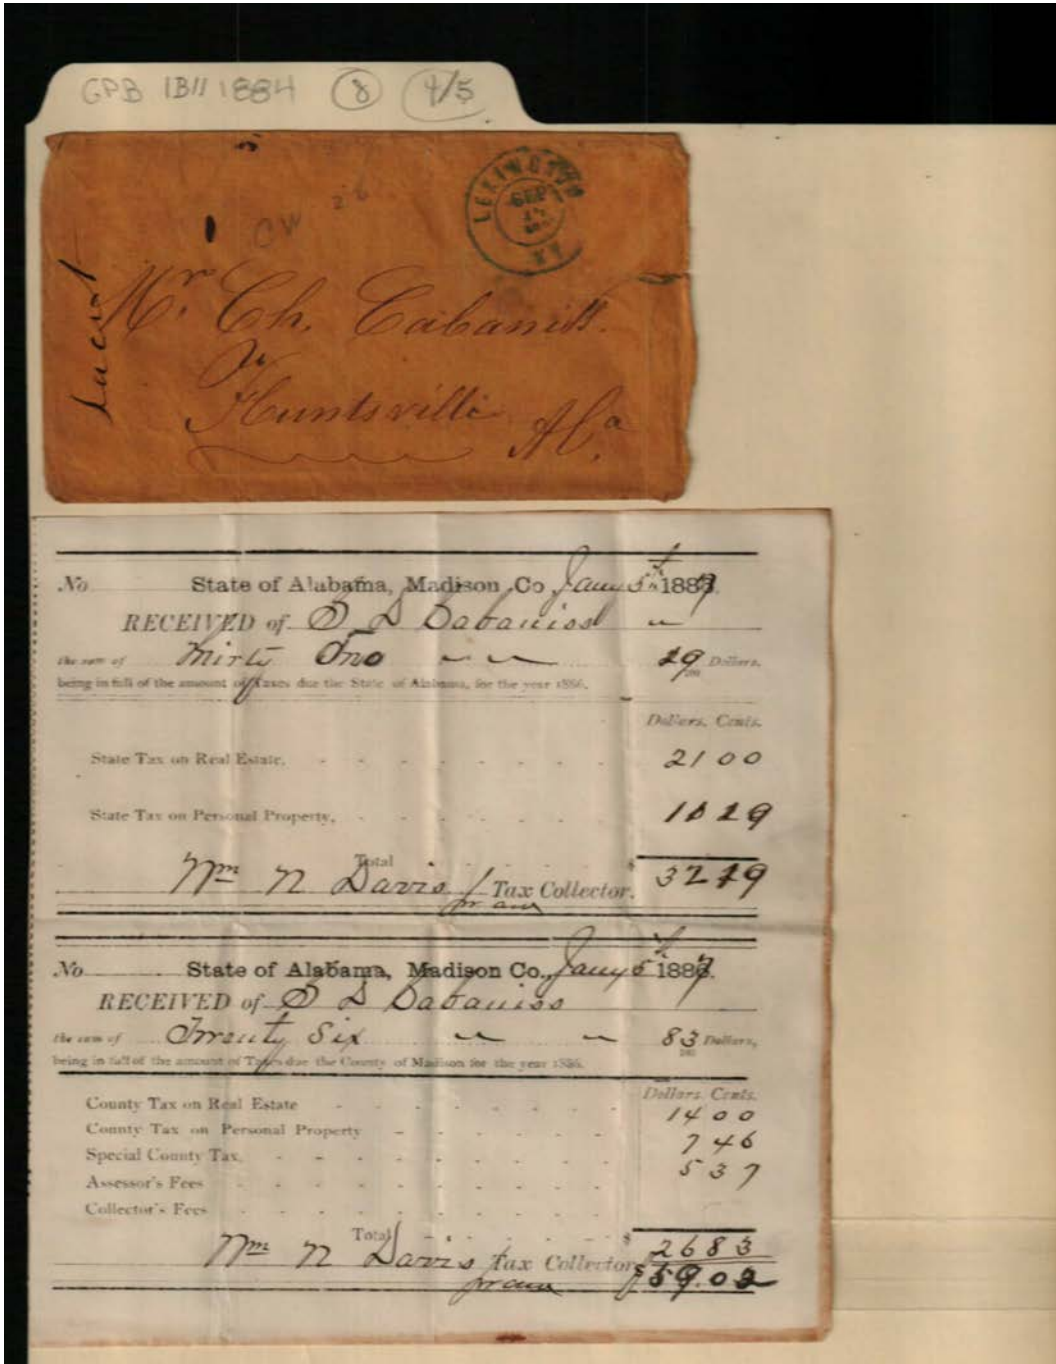 GPB 1B11 1884 8 4/5
LEXINGTON
SEP
KY
CW 26
Mr. Ch. Cabaniss.
Huntsville
Ala
No State of Alabama, Madison Co Jany 5th 1887.
RECEIVED of S D Cabaniss
the sum of Thirty Two 19/100 Dollars.
being in full of the amount of Taxes due the State of Alabama, for the year 1886.
Dollars. Cents.
State Tax on Real Estate, 21 00
State Tax on Personal Property, 11 19
Total $ 32 19
Wm N Davis Tax Collector.
No State of Alabama, Madison Co., Jany 5th 1887.
RECEIVED of S D Cabaniss
the sum of Twenty Six 83/100 Dollars,
being in full of the amount of Taxes due the County of Madison for the year 1886.
Dollars. Cents.
County Tax on Real Estate 14 00
County Tax on Personal Property 7 46
Special County Tax, 5 37
Assessor's Fees
Collector's Fees
Total $ 26 83
Wm N Davis Tax Collector $59.02